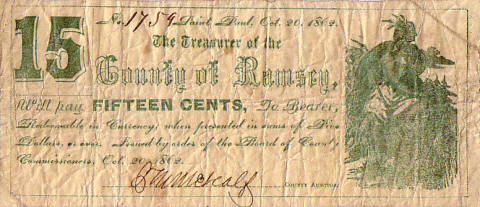 No. 1759 Saint Paul, Oct. 20. 1862.
15
The Treasurer of the
County of Ramsey,
Will pay FIFTEEN CENTS, To Bearer,
Redeemable in Currency, when presented in sums of Five
Dollars, or over. Issued by order of the Board of County
Commissioners, Oct. 20 1862.
Metcalf
COUNTY AUDITOR.